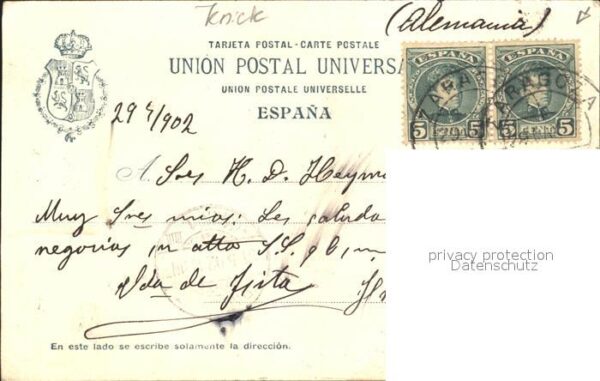 Knick
(Alemania)
TARJETA POSTAL - CARTE POSTALE
UNIÓN POSTAL UNIVERSA
UNION POSTALE UNIVERSELLE
ESPAÑA
ESPAÑA ESPAÑA
5 5 5 5
ZARAGOZA
29 4/902
A. Sres H. D. Heym
Muy Sres mios: Les saluda
negocios, su atto S.S. q b, m
Vda de
En este lado se escribe solamente la dirección.
privacy protection
Datenschutz